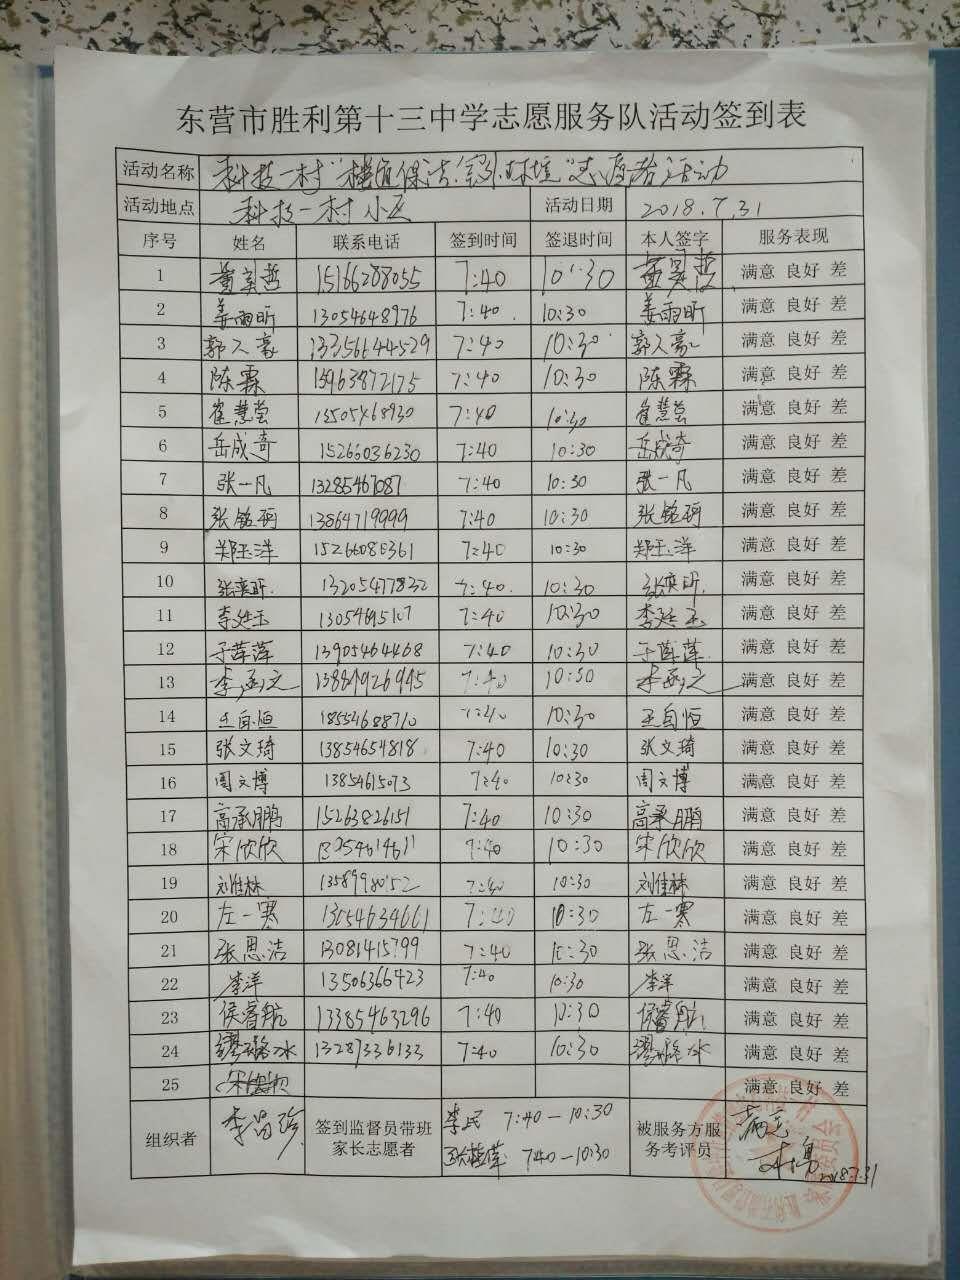 东营市胜利第十三中学志愿服务队活动签到表
活动名称 科技一村"楼道保洁 环境"志愿者活动
活动地点 科技一村小区 活动日期 2018.7.31
序号 姓名 联系电话 签到时间 签退时间 本人签字 服务表现
1 董昊哲 15166288055 7:40 10:30 董昊哲 满意 良好 差
2 姜雨昕 13054648976 7:40 10:30 姜雨昕 满意 良好 差
3 郭人豪 13356644529 7:40 10:30 郭人豪 满意 良好 差
4 陈霖 15963872175 7:40 10:30 陈霖 满意 良好 差
5 崔慧莹 13505468930 7:40 10:30 崔慧莹 满意 良好 差
6 岳成奇 15266036230 7:40 10:30 岳成奇 满意 良好 差
7 张一凡 13285467087 7:40 10:30 张一凡 满意 良好 差
8 张铭玥 13864719999 7:40 10:30 张铭玥 满意 良好 差
9 郑玉洋 15266080361 7:40 10:30 郑玉洋 满意 良好 差
10 张奕昕 13205477832 7:40 10:30 张奕昕 满意 良好 差
11 李延玉 13054695107 7:40 10:30 李延玉 满意 良好 差
12 于萍萍 13905464468 7:40 10:30 于萍萍 满意 良好 差
13 李函之 13889926945 7:40 10:30 李函之 满意 良好 差
14 王自恒 18554688710 7:40 10:30 王自恒 满意 良好 差
15 张文琦 13854654818 7:40 10:30 张文琦 满意 良好 差
16 周文博 13854615073 7:40 10:30 周文博 满意 良好 差
17 高承鹏 15263826151 7:40 10:30 高承鹏 满意 良好 差
18 宋欣欣 7:40 10:30 宋欣欣 满意 良好 差
19 刘佳林 13589980152 7:40 10:30 刘佳林 满意 良好 差
20 左一寒 13054634661 7:40 10:30 左一寒 满意 良好 差
21 张思洁 13081415799 7:40 10:30 张思洁 满意 良好 差
22 李洋 13506366423 7:40 10:30 李洋 满意 良好 差
23 侯睿航 13385463296 7:40 10:30 侯睿航 满意 良好 差
24 缪璐冰 13287336133 7:40 10:30 缪璐冰 满意 良好 差
25 满意 良好 差
组织者 签到监督员带班家长志愿者 李民 7:40—10:30 被服务方服务考评员 满意
7:40—10:30
2018.7.31